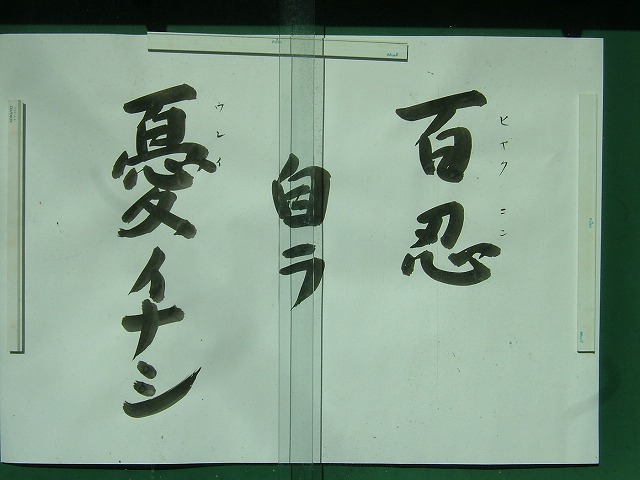 百忍
ヒャクニン
自ラ
憂イナシ
ウレイ